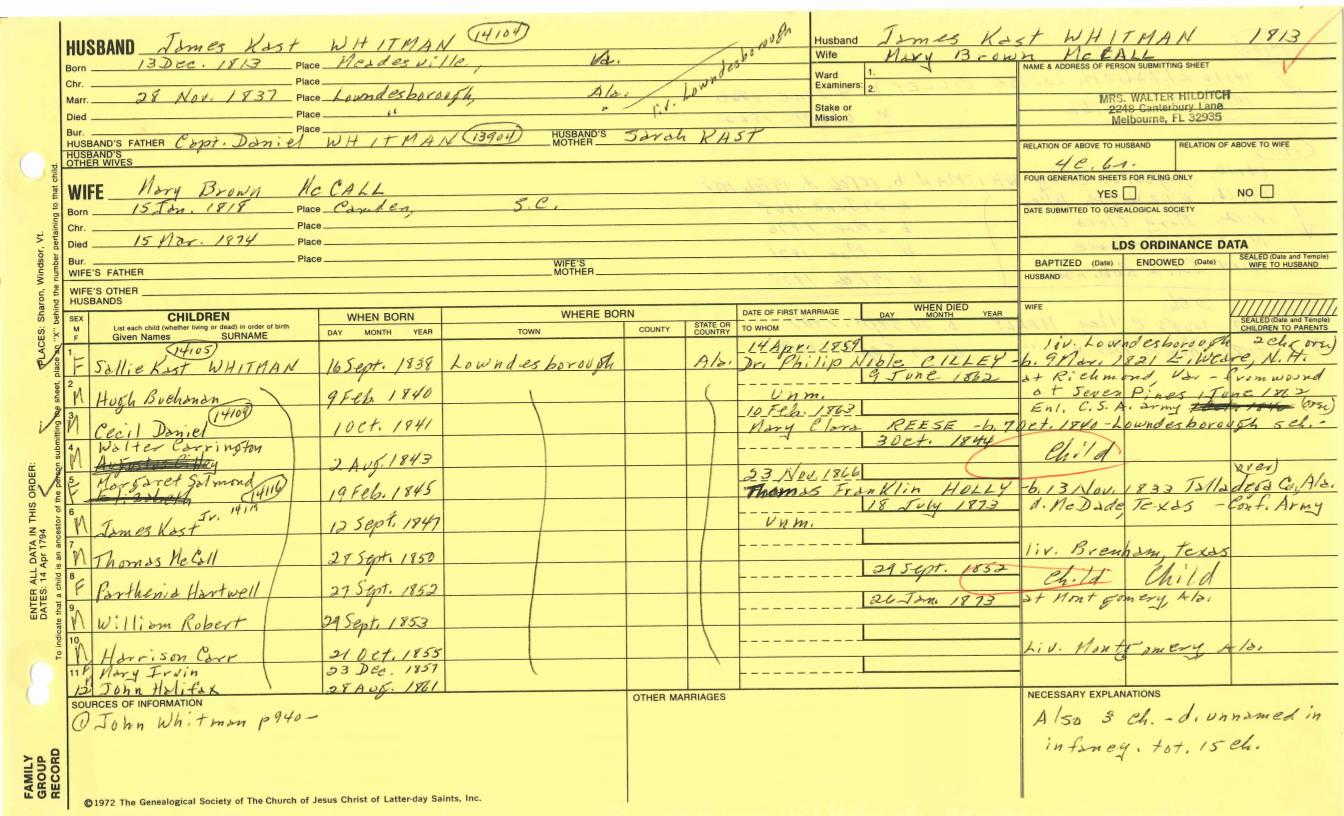 HUSBAND James Kast WHITMAN 14104
Born 13 Dec. 1813 Place Meadesville, Va.
Chr. Place
Marr. 28 Nov. 1837 Place Lowndesborough, Ala.
Died Place " " r.v. Lowndesborough
Bur. Place
HUSBAND'S FATHER Capt. Daniel WHITMAN 13904 HUSBAND'S MOTHER Sarah KAST
HUSBAND'S OTHER WIVES
WIFE Mary Brown McCALL
Born 15 Jan. 1818 Place Camden, S.C.
Chr. Place
Died 15 Mar. 1874 Place
Bur. Place
WIFE'S FATHER WIFE'S MOTHER
WIFE'S OTHER HUSBANDS
Husband James Kast WHITMAN 1813
Wife Mary Brown McCALL
Ward Examiners: 1. 2.
Stake or Mission
NAME & ADDRESS OF PERSON SUBMITTING SHEET
MRS. WALTER HILDITCH
2248 Canterbury Lane
Melbourne, FL 32935
RELATION OF ABOVE TO HUSBAND RELATION OF ABOVE TO WIFE
4c. 6r.
FOUR GENERATION SHEETS FOR FILING ONLY
YES NO
DATE SUBMITTED TO GENEALOGICAL SOCIETY
LDS ORDINANCE DATA
BAPTIZED (Date) ENDOWED (Date) SEALED (Date and Temple) WIFE TO HUSBAND
HUSBAND
WIFE
SEALED (Date and Temple) CHILDREN TO PARENTS
SEX M F
CHILDREN
List each child (whether living or dead) in order of birth
Given Names SURNAME
WHEN BORN
DAY MONTH YEAR
WHERE BORN
TOWN COUNTY STATE OR COUNTRY
DATE OF FIRST MARRIAGE
TO WHOM
WHEN DIED
DAY MONTH YEAR
14105 14 Apr. 1859 liv. Lowndesborough 2 ch (over)
1 F Sallie Kast WHITMAN 16 Sept. 1838 Lowndesborough Ala. Dr. Philip Noble CILLEY - b. 9 Mar. 1821 E. Weare, N.H.
9 June 1862 at Richmond, Va. - from wound
2 M Hugh Buchanan 9 Feb. 1840 Unm. at Seven Pines 1 June 1862
14109 10 Feb. 1863 Enl. C.S.A. army (over)
3 M Cecil Daniel 1 Oct. 1841 Mary Clara REESE - b. 7 Oct. 1840 - Lowndesborough sch. -
4 M Walter Carrington 3 Oct. 1844 Child
2 Aug. 1843
5 F Margaret Salmond 23 Nov. 1866 (over)
Elizabeth 14116 19 Feb. 1845 Thomas Franklin HOLLY - b. 13 Nov. 1833 Talladega Co., Ala.
18 July 1873 d. McDade, Texas - Conf. Army
6 M James Kast Jr. 12 Sept. 1847 Unm.
7 M Thomas McCall 28 Sept. 1850 liv. Brenham, Texas
8 F Parthenia Hartwell 27 Sept. 1852 29 Sept. 1852 Child Child
9 M William Robert 29 Sept. 1853 26 Jan. 1873 at Montgomery, Ala.
10 M Harrison Carr 21 Oct. 1855 Liv. Montgomery Ala.
11 F Mary Irvin 23 Dec. 1857
12 John Halifax 28 Aug. 1861
SOURCES OF INFORMATION
① John Whitman p940-
OTHER MARRIAGES
NECESSARY EXPLANATIONS
Also 3 ch. - d. unnamed in
infancy. tot. 15 ch.
©1972 The Genealogical Society of The Church of Jesus Christ of Latter-day Saints, Inc.
FAMILY GROUP RECORD
ENTER ALL DATA IN THIS ORDER:
DATES: 14 Apr 1794
PLACES: Sharon, Windsor, Vt.
To indicate that a child is an ancestor of the person submitting the sheet, place an "X" behind the number pertaining to that child.